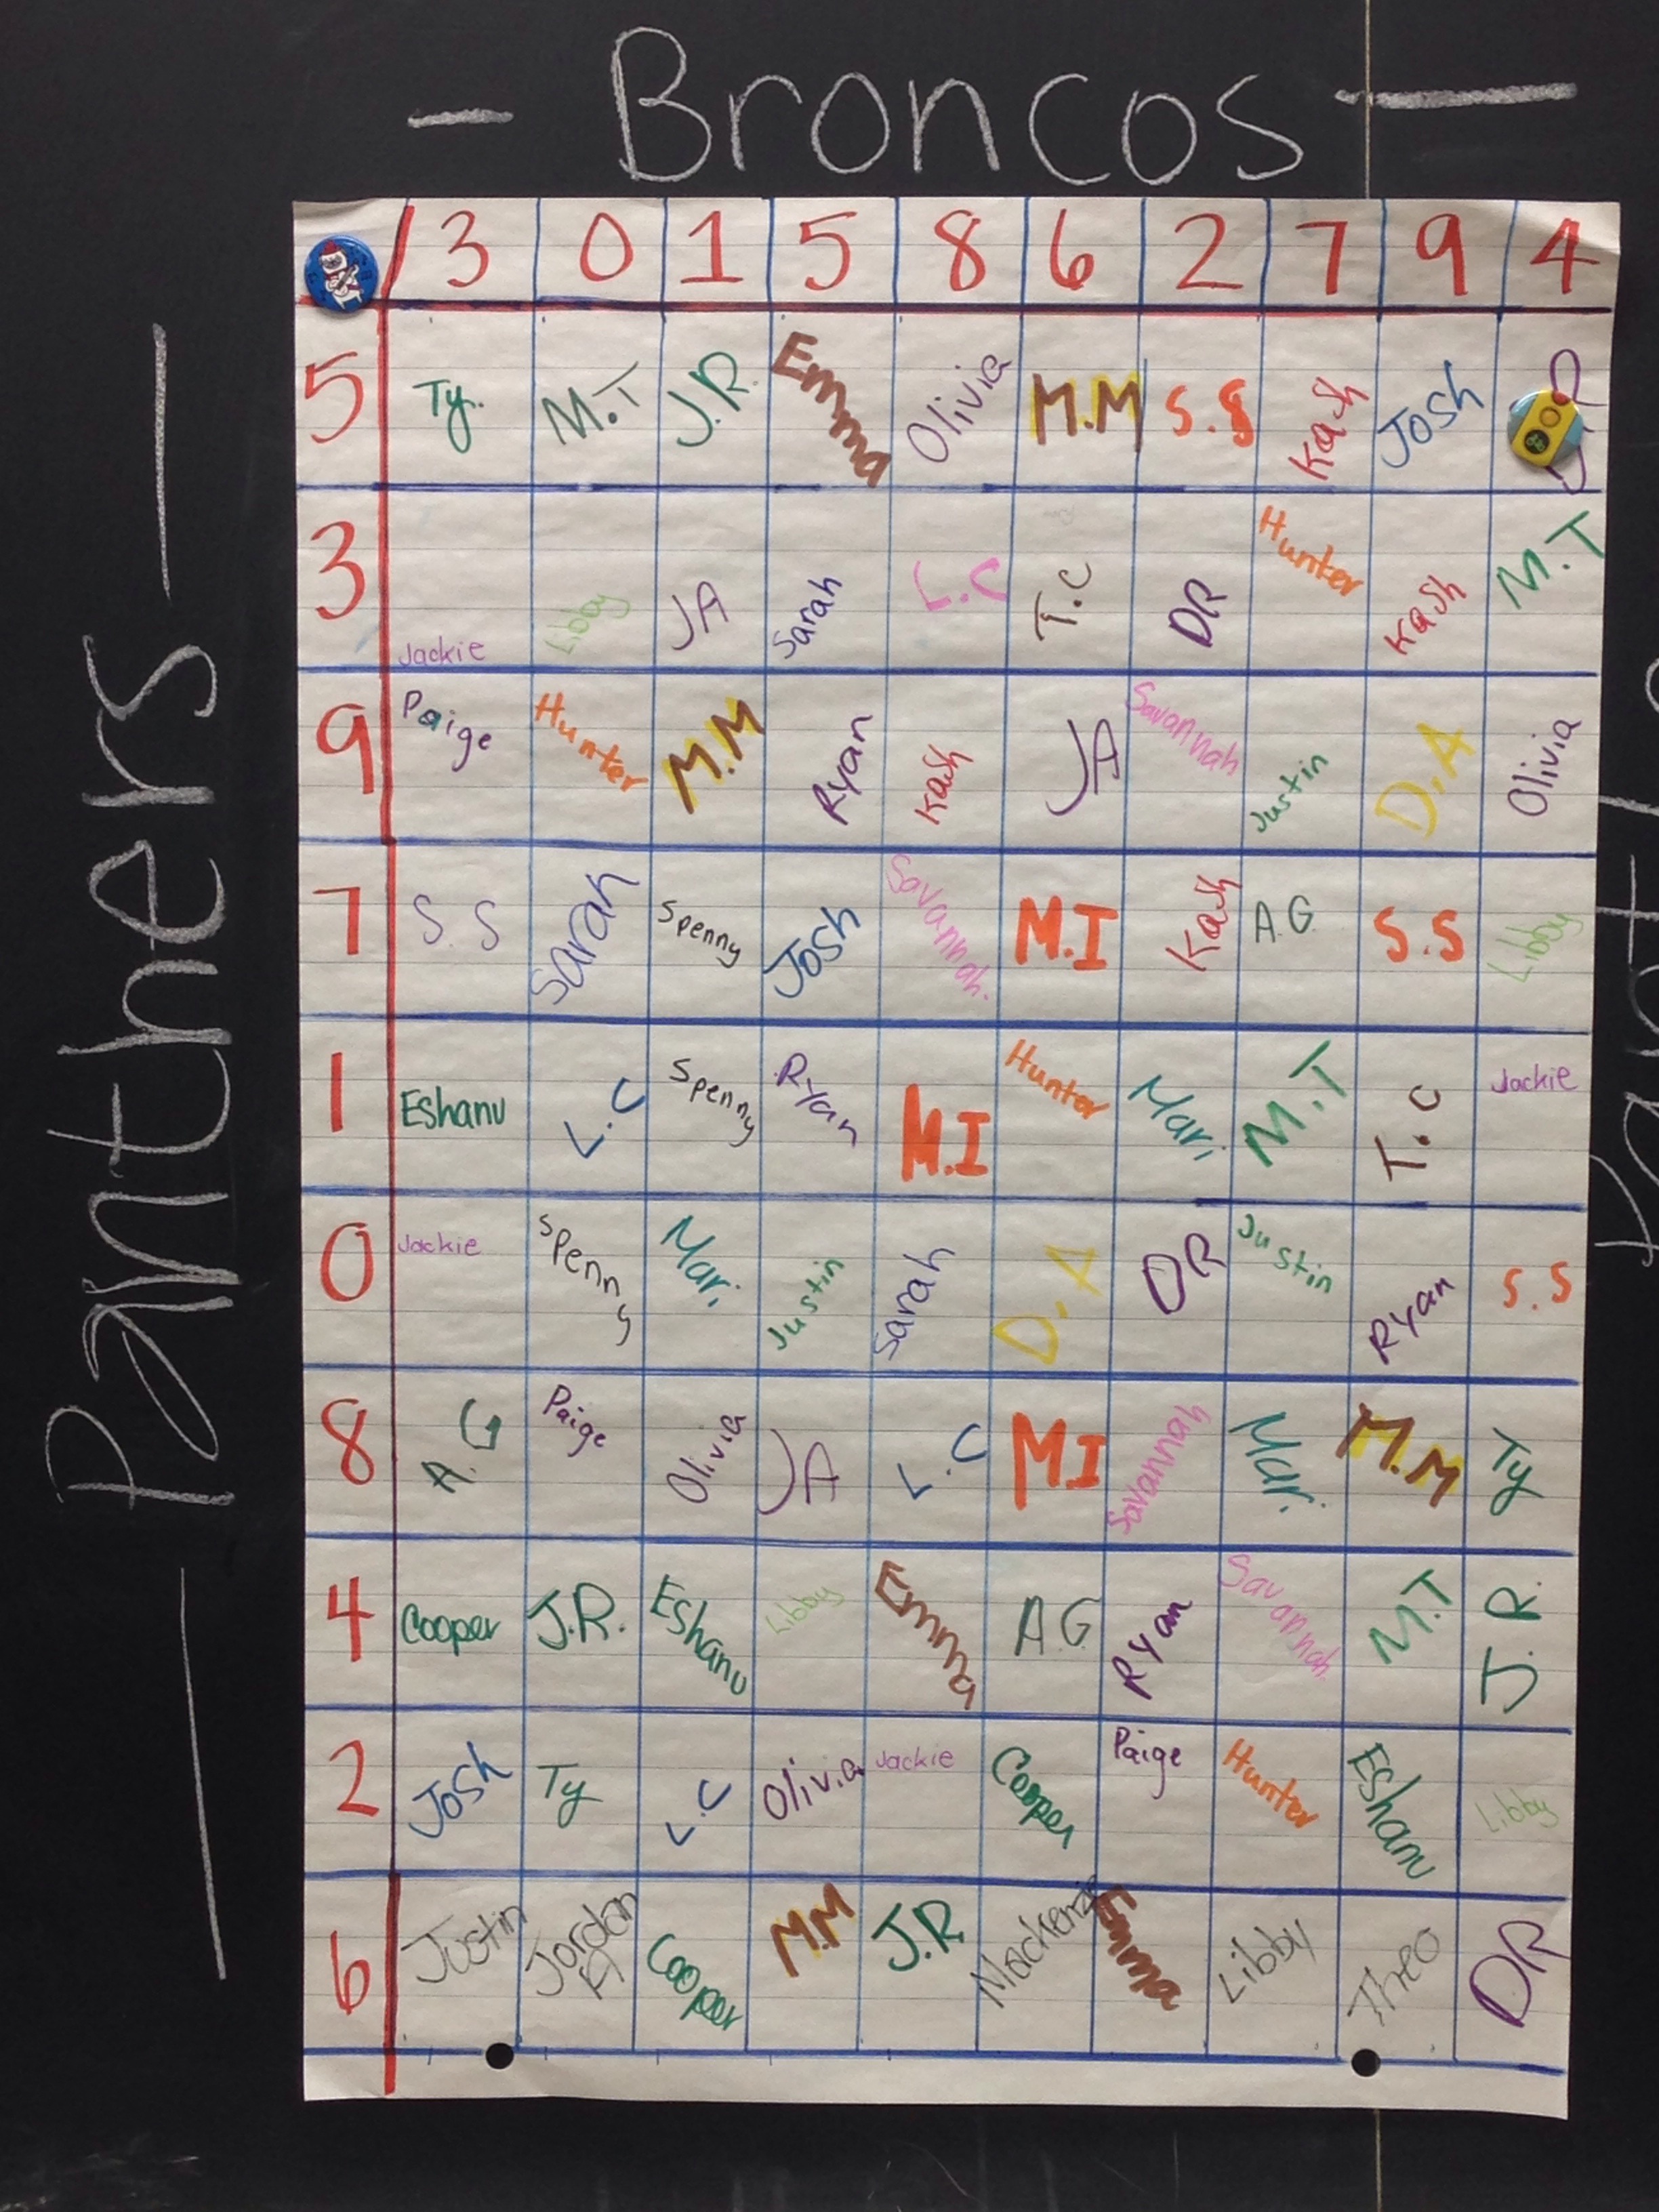 - Broncos -
Panthers
3 0 1 5 8 6 2 7 9 4
5 Ty. M.T J.R. Emma Olivia M.M S.S Kash Josh
3 Jackie Libby JA Sarah L.C T.C DR Hunter Kash M.T
9 Paige Hunter M.M Ryan Kash JA Savannah Justin D.A Olivia
7 S.S Sarah Spenny Josh Savannah. M.I Kash A.G. S.S Libby
1 Eshanu L.C Spenny Ryan M.I Hunter Mari M.T T.C Jackie
0 Jackie Spenny Mari Justin Sarah D.A DR Justin Ryan S.S
8 A.G Paige Olivia JA L.C MI Savannah Mari M.M Ty
4 Cooper J.R. Eshanu Libby Emma A.G Ryan Savannah M.T J.R.
2 Josh Ty L.C Olivia Jackie Cooper Paige Hunter Eshanu Libby
6 Justin Jordan R Cooper M.M J.R Mackenzie Emma Libby Theo DR